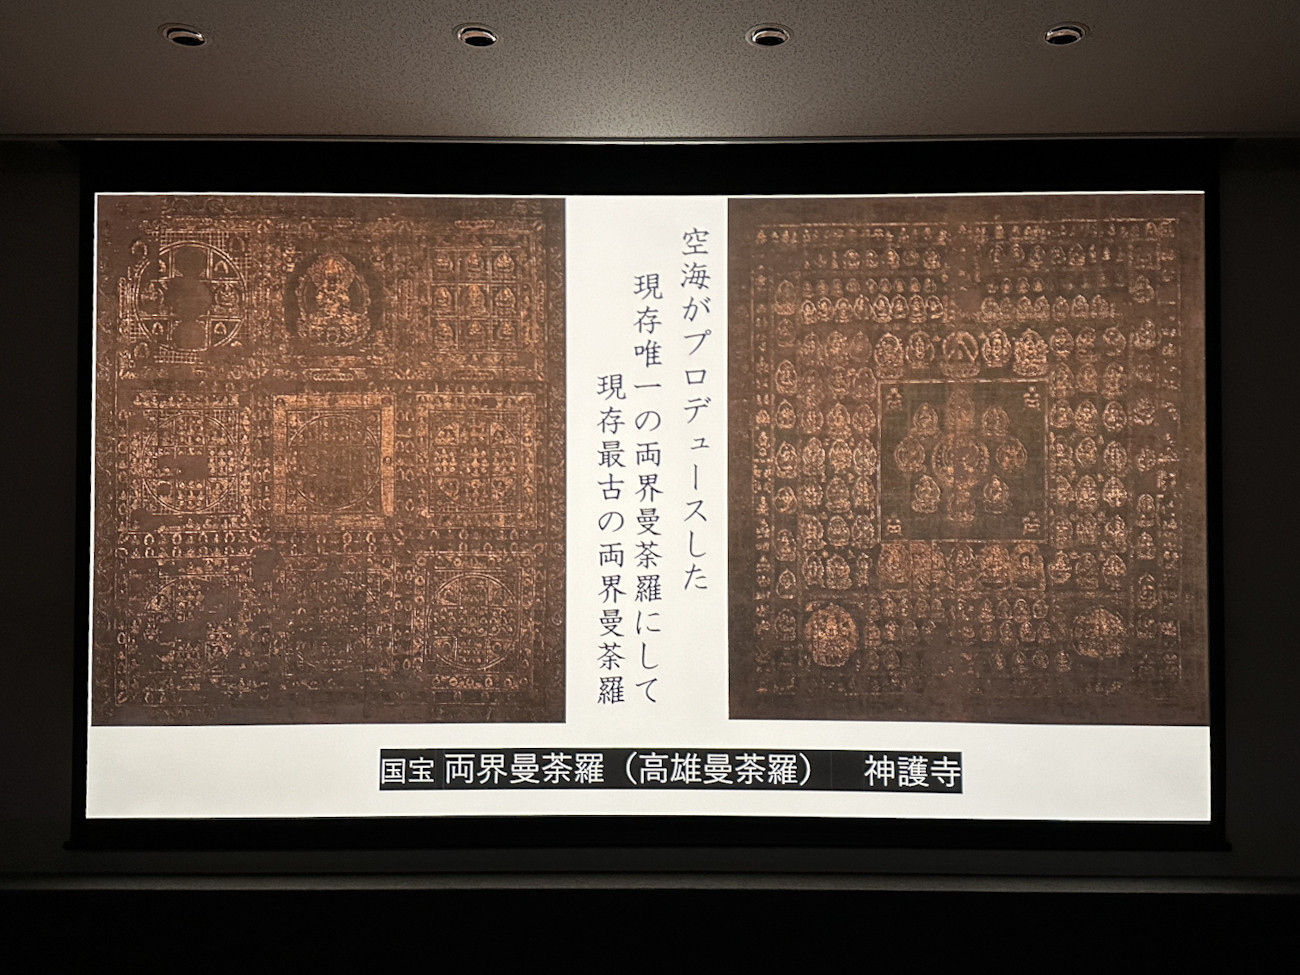 空海がプロデュースした
現存唯一の両界曼荼羅にして
現存最古の両界曼荼羅
国宝 両界曼荼羅(高雄曼荼羅) 神護寺